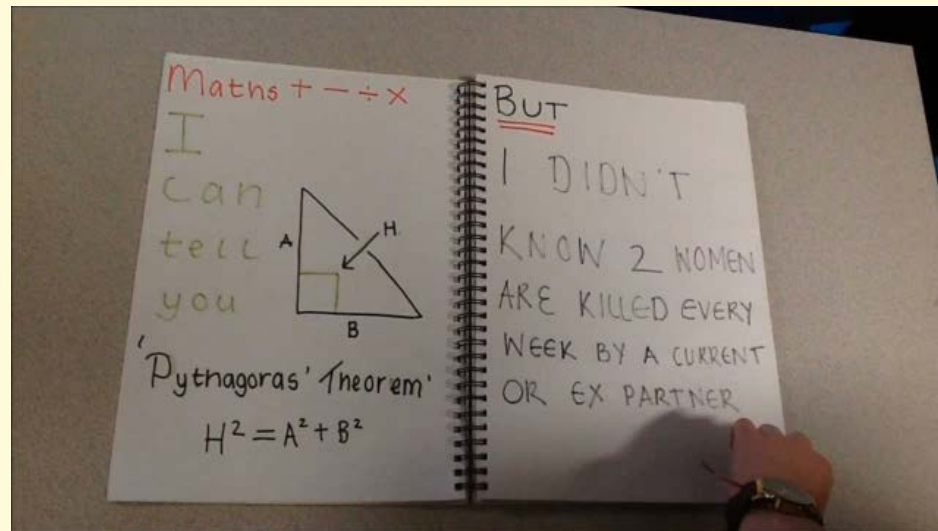 Maths + − ÷ ×
I
can
tell
you
A
H
B
'Pythagoras' Theorem'
H² = A² + B²
BUT
I DIDN'T
KNOW 2 WOMEN
ARE KILLED EVERY
WEEK BY A CURRENT
OR EX PARTNER